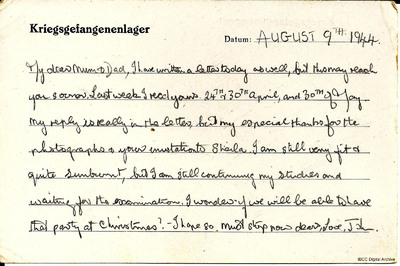 Kriegsgefangenenlager
Datum: AUGUST 9TH. 1944.
My dear Mum & Dad, I have written a letter today as well, but this may reach
you sooner. Last week I recd yours 24TH & 30TH April, and 30TH of May
My reply is really in the letter, but my especial thanks for the
photographs & your invitation to Sheila. I am still very fit &
quite sunburnt, but I am still continuing my studies and
waiting for the examination. I wonder if we will be able to have
that party at Christmas? - I hope so. Must stop now dears, Love, John
IBCC Digital Archive